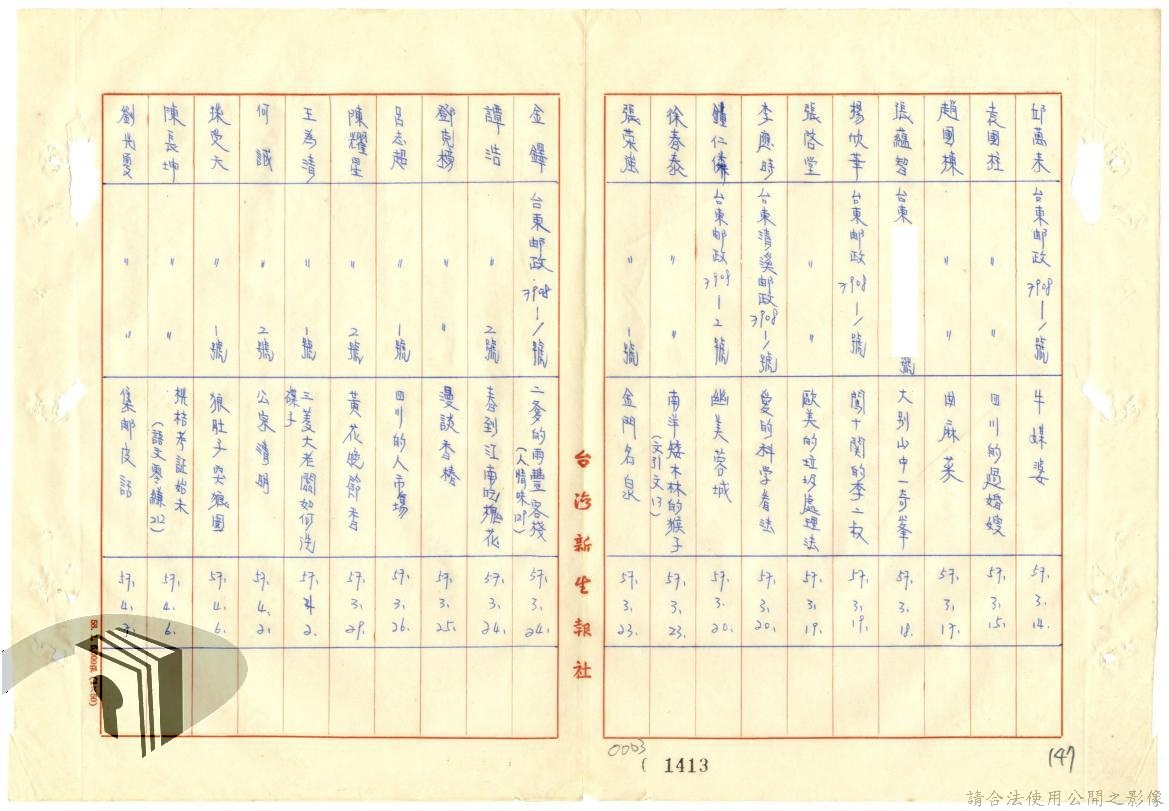 邱萬来 台東郵政7908-1/號 牛媒婆 57. 3. 14.
袁團柱 〃 〃 四川的過婚嫂 57. 3. 15.
趙國棟 〃 〃 麻菜 57. 3. 17.
張蘊智 台東 號 大別山中一奇峯 57. 3. 18.
楊欣華 台東郵政7908-1/號 闖十関的李二叔 57. 3. 19.
張啓堂 〃 〃 歐美的垃圾處理法 57. 3. 19.
李應時 台東清溪郵政7908-1/號 愛的科学看法 57. 3. 20.
鍾仁 台東郵政7908-2號 幽美蓉城 57. 3. 20.
徐春泰 〃 〃 南洋矮木林的猴子(文引文13) 57. 3. 23.
張荣強 〃 1號 金門名泉 57. 3. 23.
台灣新生報社
金鐸 台東郵政7908-1/號 二爹的雨豐客棧(人情味129) 57. 3. 24.
譚浩 〃 2號 春到江南吃槐花 57. 3. 24.
鄧克 〃 〃 漫談香椿 57. 3. 25.
呂志超 〃 1號 四川的人市場 57. 3. 26.
陳耀星 〃 2號 黃花晚節香 57. 3. 29.
王為清 〃 1號 三菱大老闆如何洗襟子 57. 4. 2.
何誠 〃 2號 公案清明 57. 4. 2.
受天 〃 1號 狼肚子 57. 4. 6.
陳長坤 〃 〃 桃桔考証始末(語文零縑212) 57. 4. 6.
劉光夏 〃 〃 集郵皮話 57. 4. 7.
0003
1413
147
請合法使用公開之影像